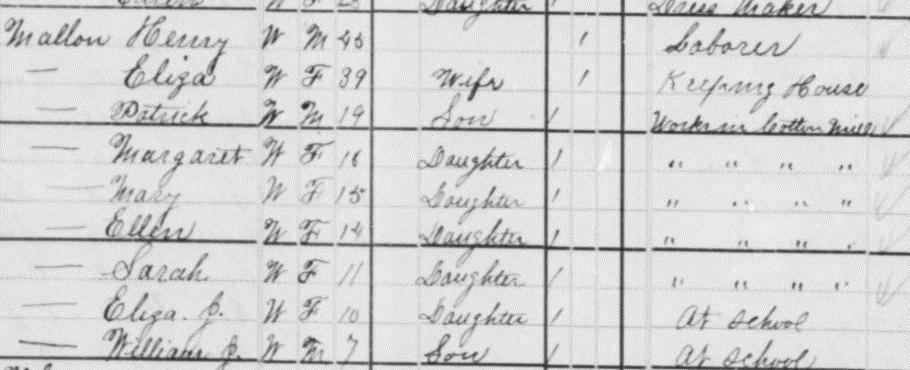 W F Daughter Dress Maker
Mallon Henry W M 45 1 Laborer
— Eliza W F 39 Wife 1 Keeping House
— Patrick W M 19 Son 1 Works in Cotton Mill
— Margaret W F 16 Daughter 1 " " " "
— Mary W F 15 Daughter 1 " " " "
— Ellen W F 14 Daughter 1 " " " "
— Sarah W F 11 Daughter 1 " " " "
— Eliza. J. W F 10 Daughter 1 At School
— William J. W M 7 Son 1 At School